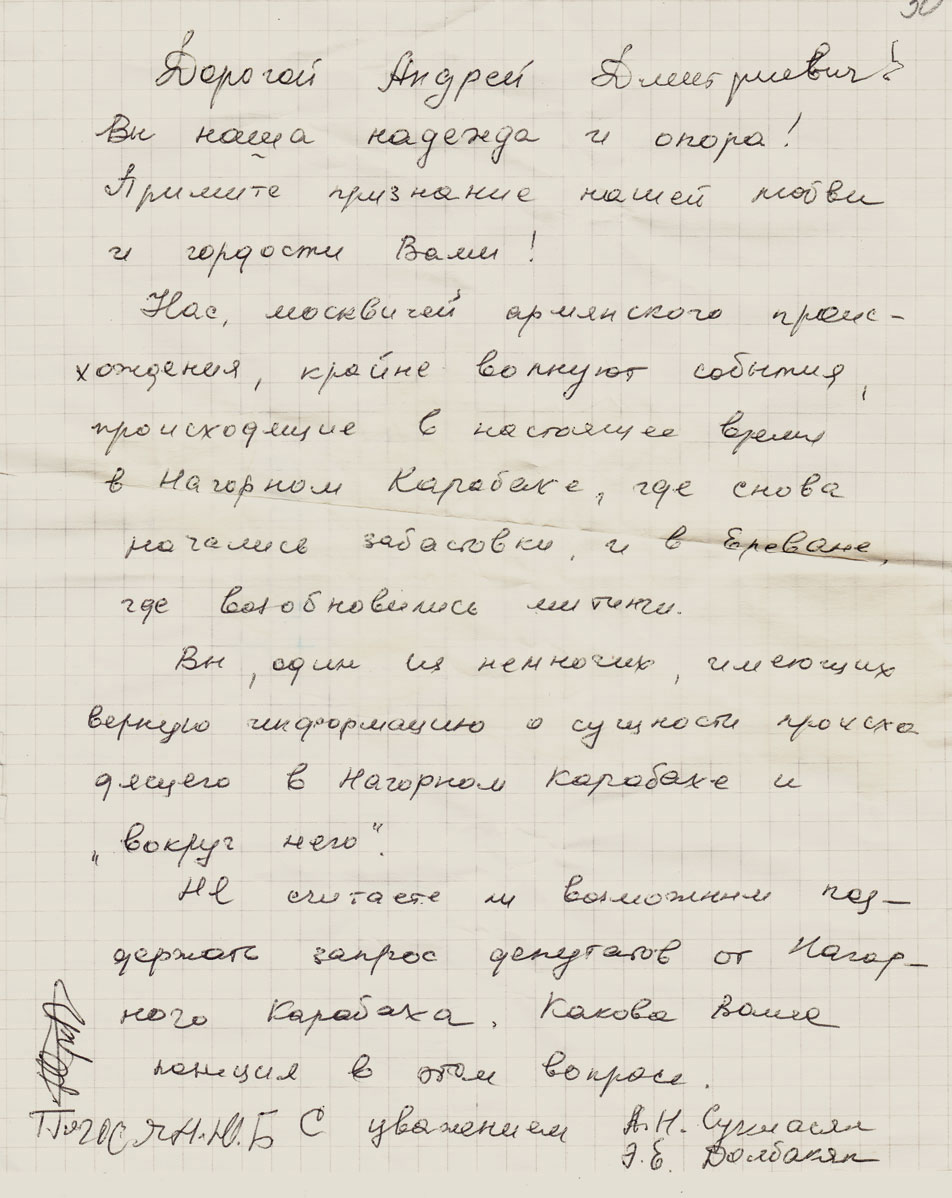 30
Дорогой Андрей Дмитриевич!
Вы наша надежда и опора!
Примите признание нашей любви
и гордости Вами!
Нас, москвичей армянского проис-
хождения, крайне волнуют события,
происходящие в настоящее время
в Нагорном Карабахе, где снова
начались забастовки, и в Ереване,
где возобновились митинги.
Вы, один из немногих, имеющих
верную информацию о сущности происхо
дящего в Нагорном Карабахе и
„вокруг него".
Не считаете ли возможным под-
держать запрос депутатов от Нагор-
ного Карабаха. Какова Ваша
позиция в этом вопросе.
С уважением А.Н.
Ю.Б Э.Е.